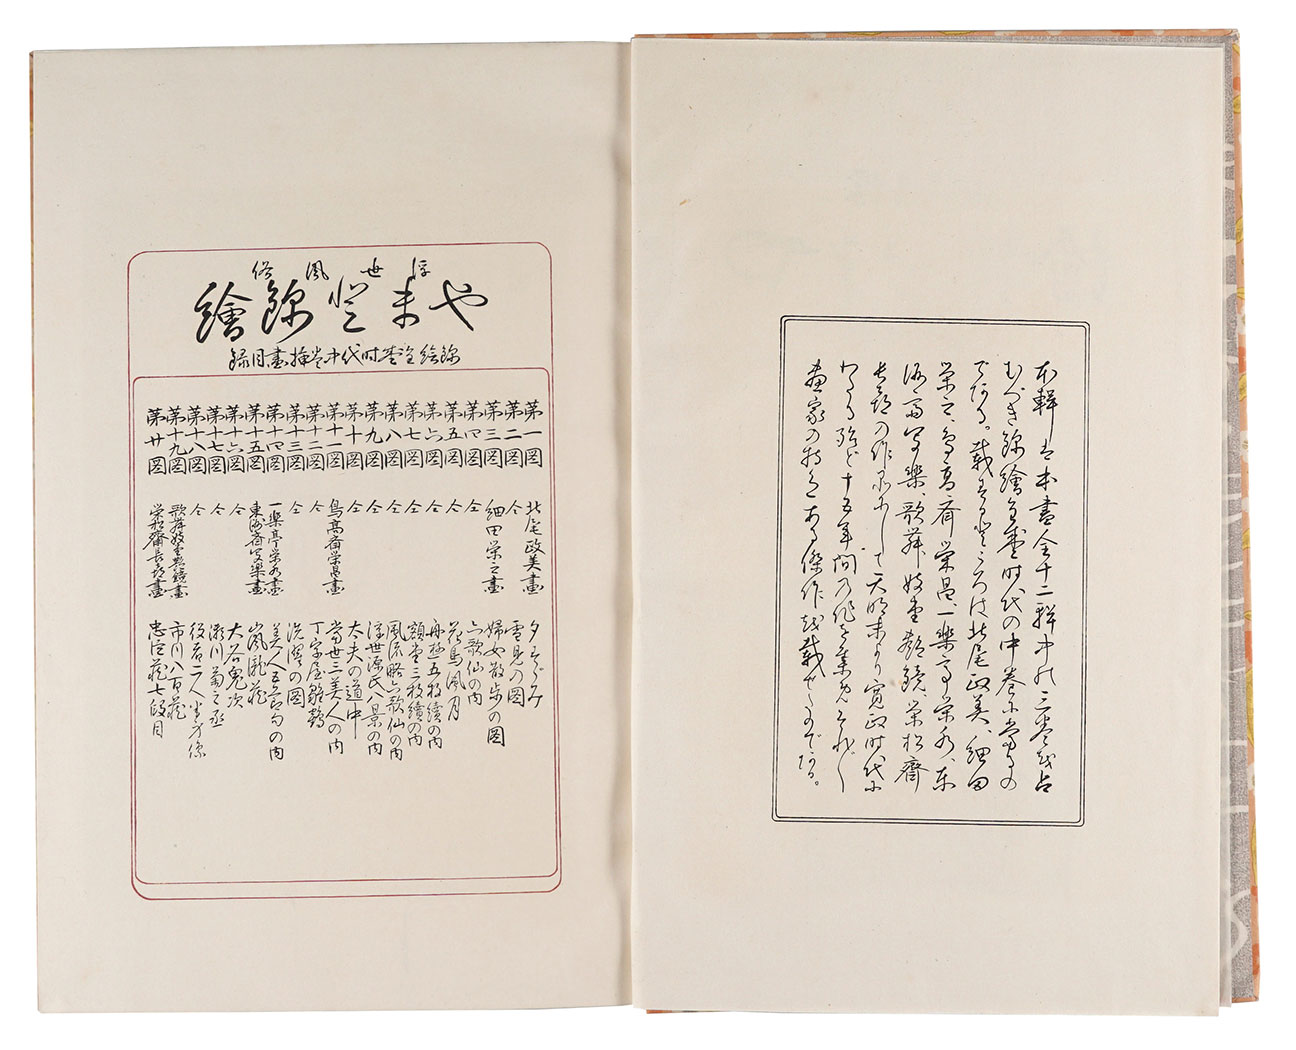 本輯は本畫全十二輯中の三巻を占
むべき錦繪全盛時代の中巻に當るの
である。載するところは北尾政美、細田
栄之、鳥高斎栄昌、一楽亭栄水、東
洲斎写楽、歌舞妓堂艶鏡、栄松齋
長喜の作品にして天明末より寛政時代に
わたる殆ど十五年間の作を集めそれ〲
畫家の特色ある傑作を載せたのである。
浮世風俗
やまと錦繪
錦絵全盛时代中巻挿畫目録
第一図 北尾政美畫 夕すゞみ
第二図 仝 雪見の図
第三図 細田栄之畫 婦女散歩の圖
第四図 仝 六歌仙の内
第五図 仝 花鳥風月
第六図 仝 舟遊五枚續の内
第七図 仝 額堂三枚續の内
第八図 仝 風流略六歌仙の内
第九図 仝 浮世源氏八景の内
第十図 仝 太夫の道中
第十一図 鳥高斎栄昌畫 當世三美人の内
第十二図 仝 丁字屋雛鶴
第十三図 仝 洗濯の圖
第十四図 一楽亭栄水畫 美人五節句の内
第十五図 東洲斎写楽畫 嵐龍蔵
第十六図 仝 大谷鬼次
第十七図 仝 瀬川菊之丞
第十八図 仝 役者二人
第十九図 歌舞妓堂艶鏡畫 市川八百蔵
第廿図 栄松齋長喜畫 忠臣蔵七段目